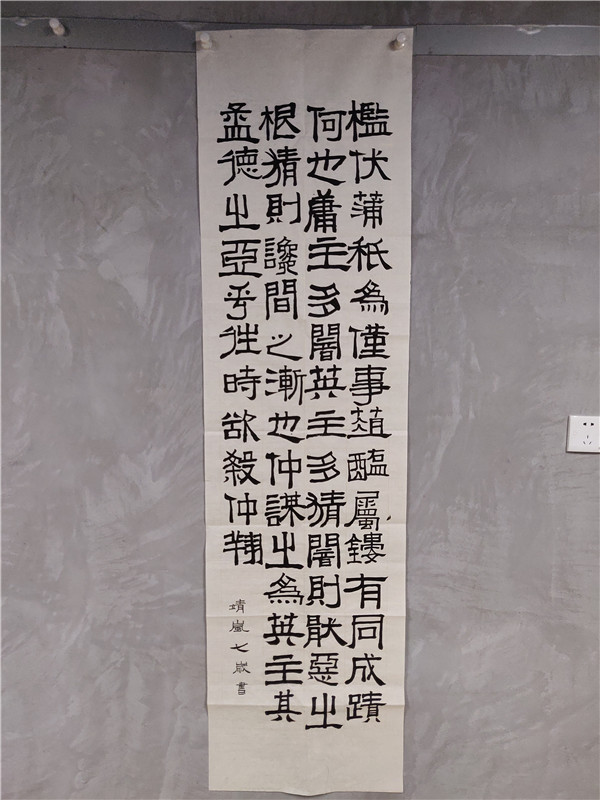 檻伏蒲祇為僅事葅醢屬鏤有同成蹟
何也庸主多闇英主多猜闇則惡之
根猜則讒間之漸也仲謀之為英主其
孟德之亞乎往時欲殺仲翔
靖嵐七歲書